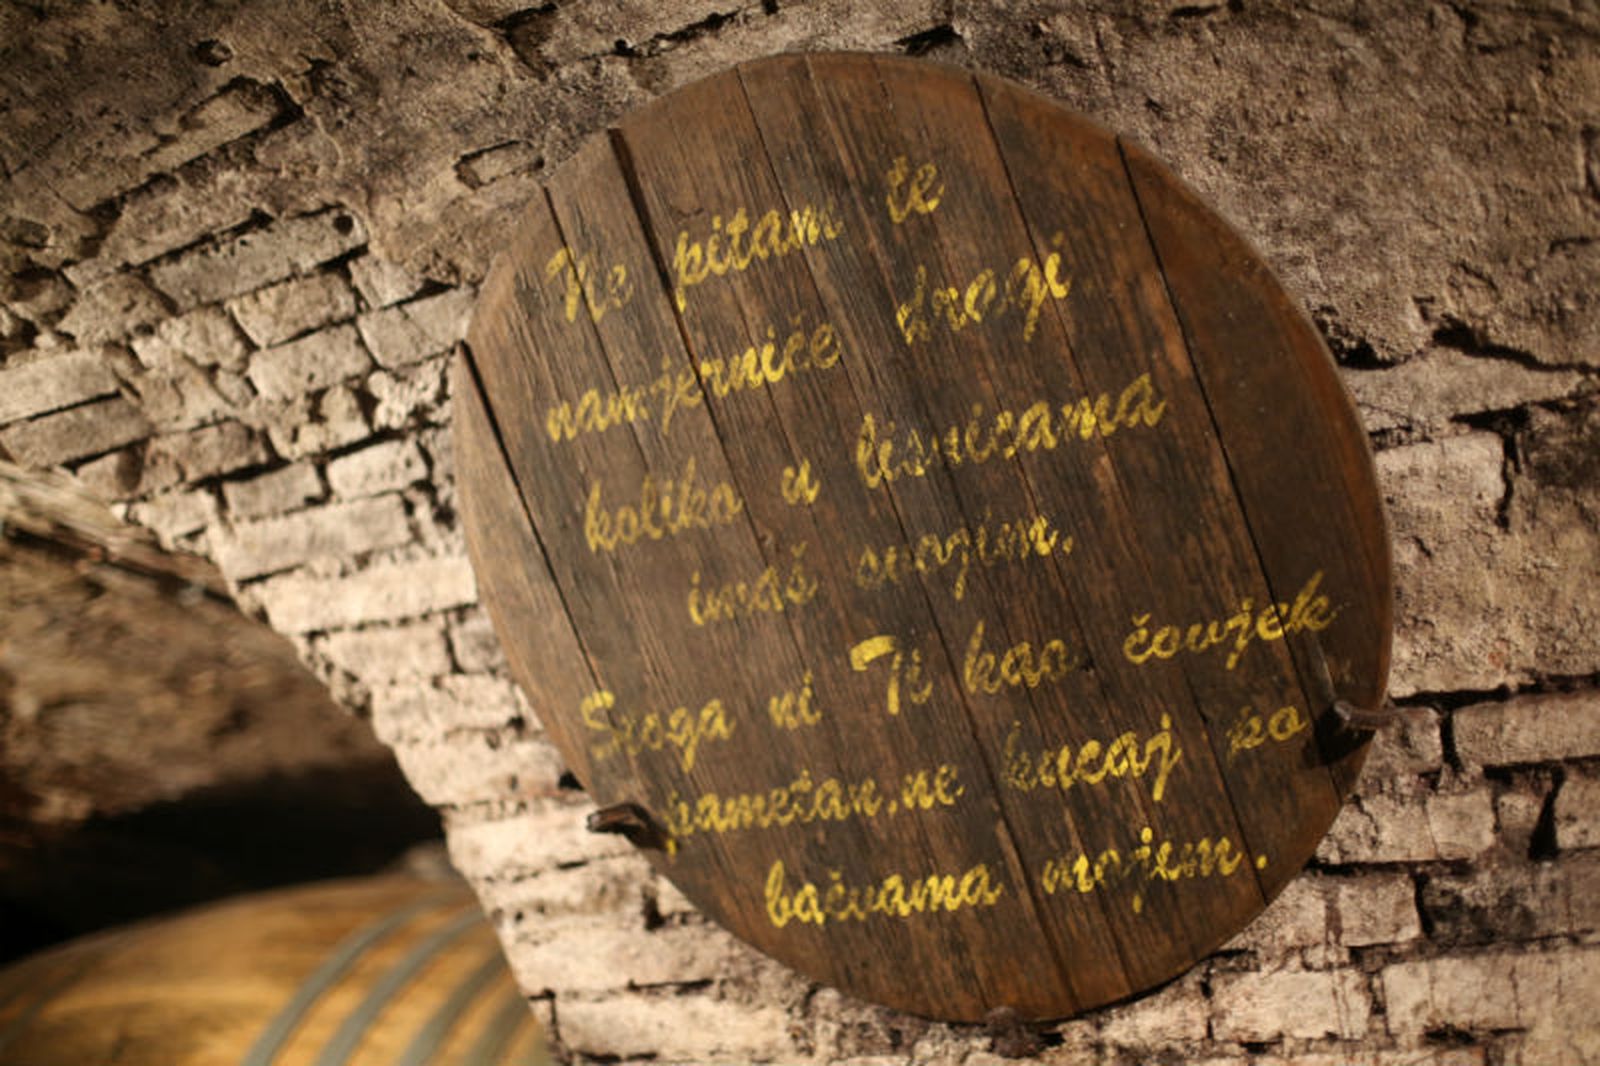 Ne pitam te
namjerniče dragi
koliko u lisnicama
imaš svojim.
Stoga ni Ti kao čovjek
pametan, ne kucaj po
bačvama mojem.